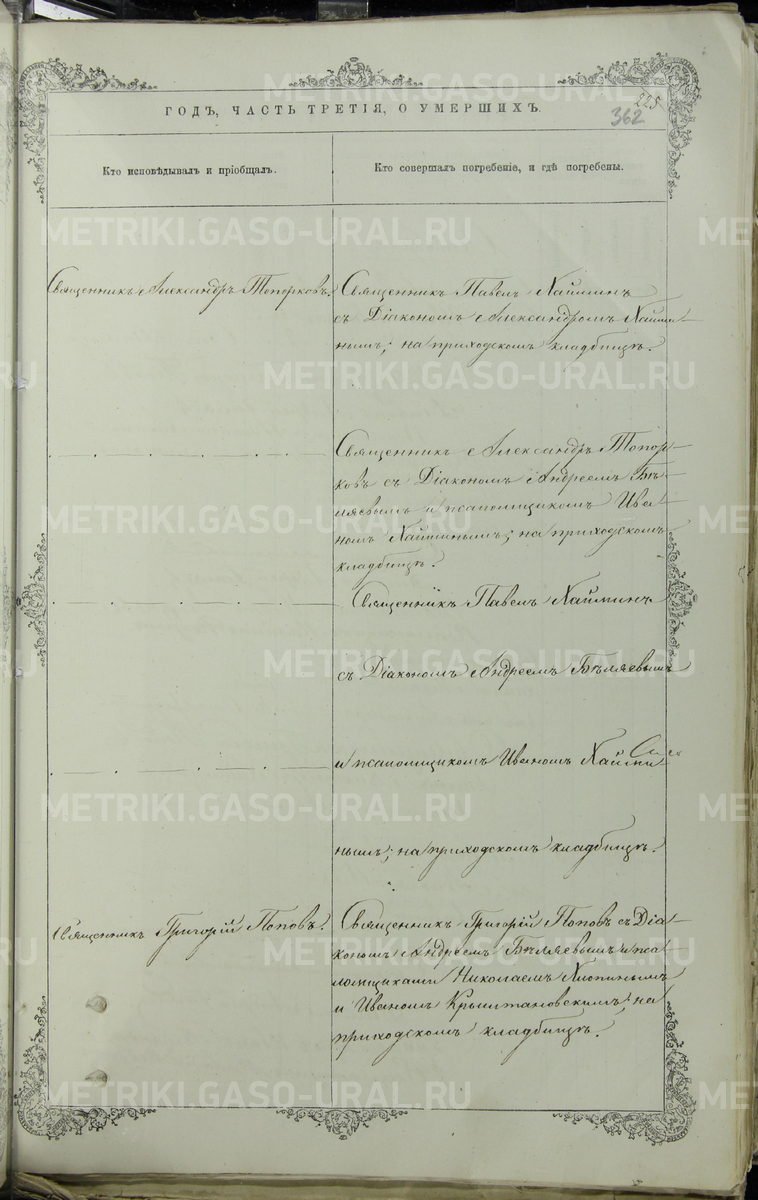 225
362
ГОДЪ, ЧАСТЬ ТРЕТІЯ, О УМЕРШИХЪ.
Кто исповѣдывалъ и пріобщалъ.
Кто совершалъ погребеніе, и гдѣ погребены.
Священникъ Александръ Топорковъ.
Священникъ Павелъ Хайминъ
съ Діакономъ Александромъ Хайми-
нымъ; на приходскомъ кладбищѣ.
Священникъ Александръ Топор-
ковъ съ Діакономъ Андреемъ Бѣ-
ляевымъ и псаломщикомъ Ива-
номъ Хайминымъ; на приходскомъ
кладбищѣ.
Священникъ Павелъ Хайминъ
съ Діакономъ Андреемъ Бѣляевымъ
и псаломщикомъ Иваномъ Хайми-
нымъ; на приходскомъ кладбищѣ.
Священникъ Григорій Поповъ.
Священникъ Григорій Поповъ съ Діа-
кономъ Андреемъ Бѣляевымъ и пса-
ломщиками Николаемъ Хлопинымъ
и Иваномъ Крыштановскимъ; на
приходскомъ кладбищѣ.
METRIKI.GASO-URAL.RU